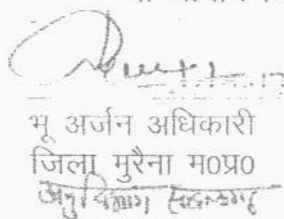 भू अर्जन अधिकारी
जिला मुरैना म0प्र0
अनुविभाग सबलगढ़